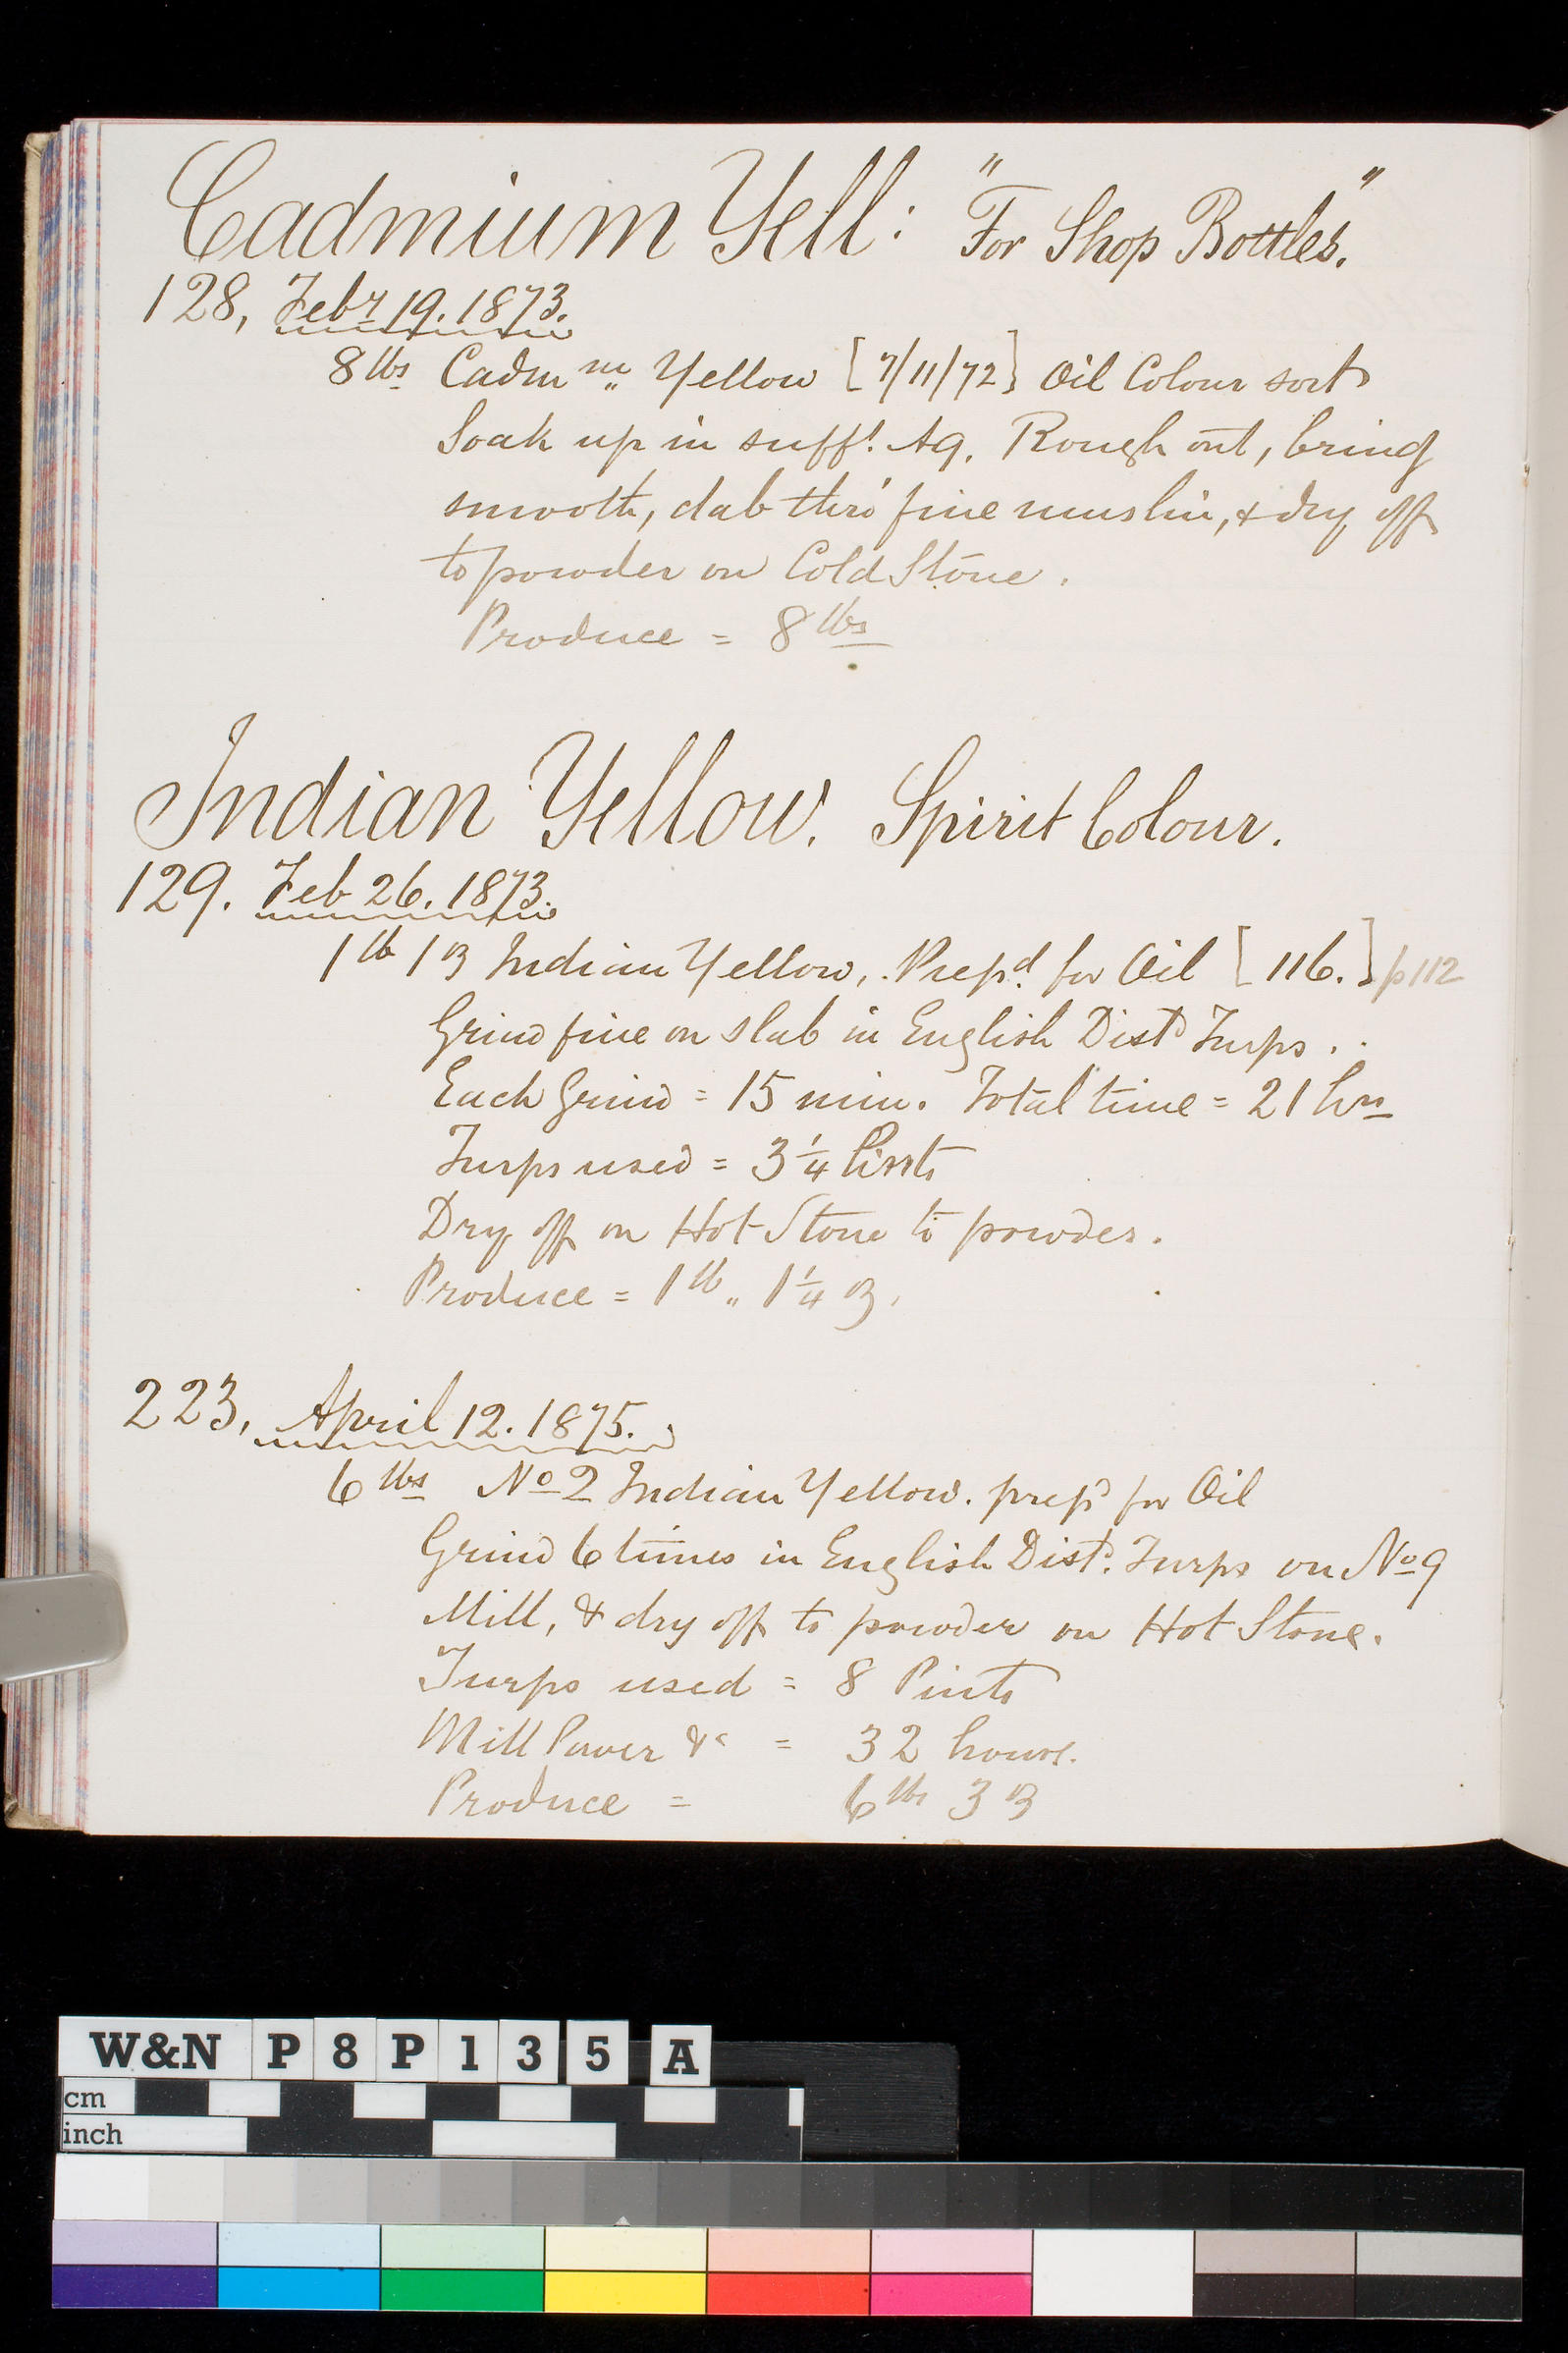 Cadmium Yell: "For Shop Bottles."
128, Feby 19. 1873.
8 lbs Cadmm Yellow [7/11/72] Oil Colour sort
Soak up in sufft Aq. Rough out, bring
smooth, dab thro' fine muslin, & dry off
to powder on Cold Stone.
Produce = 8 lbs
Indian Yellow. Spirit Colour.
129. Feb 26. 1873.
1 lb 1 oz Indian Yellow, Prepd for Oil [116.] p112
Grind fine on slab in English Distd Turps..
Each Grind = 15 min. Total time = 21 hrs
Turps used = 3 1/4 Pints
Dry off on Hot Stone to powder.
Produce = 1 lb „ 1 1/4 oz.
223, April 12. 1875.
6 lbs No 2 Indian Yellow. prepd for Oil
Grind 6 times in English Distd Turps on No 9
Mill, & dry off to powder on Hot Stone.
Turps used = 8 Pints
Mill Power &c = 32 hours.
Produce = 6 lbs 3 oz
W&N P8P135 A
cm
inch